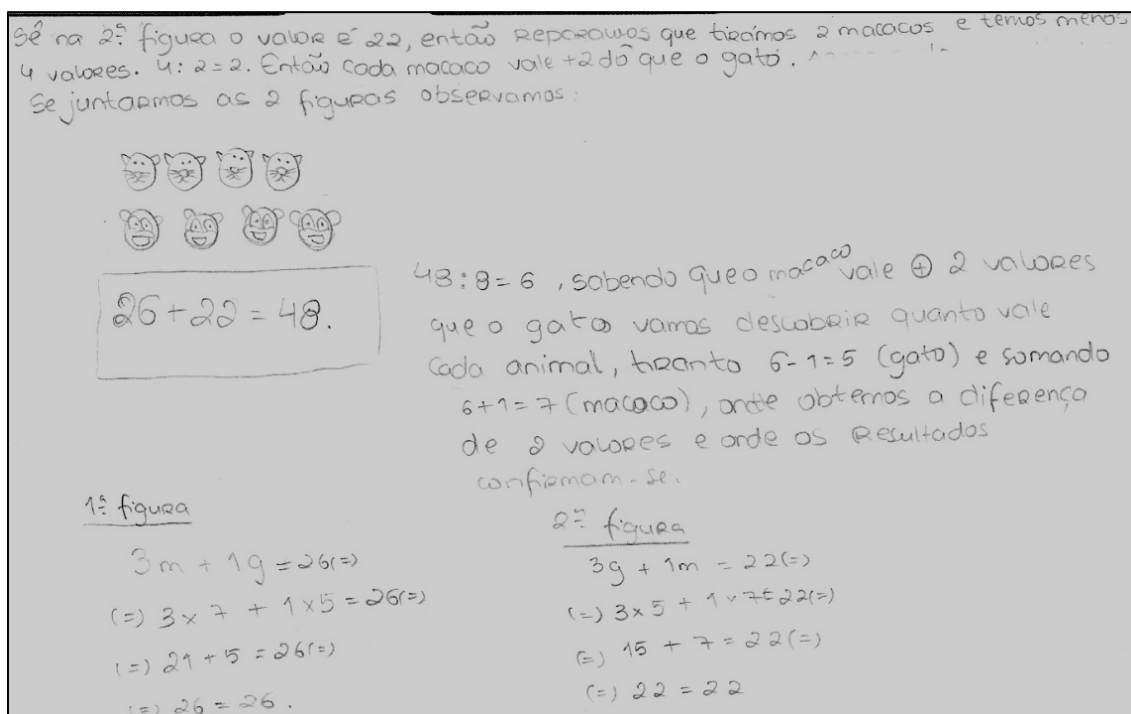 Sê na 2ª figura o valor é 22, então reparamos que tirámos 2 macacos e temos menos
4 valores. 4:2=2. Então cada macaco vale +2 do que o gato.
Se juntarmos as 2 figuras observamos:
26+22=48.
48:8=6, sabendo que o macaco vale ⊕ 2 valores
que o gato vamos descobrir quanto vale
cada animal, tiranto 6-1=5 (gato) e somando
6+1=7 (macaco), onde obtemos a diferença
de 2 valores e onde os resultados
confirmam-se.
1ª figura
3m + 1g = 26(=)
(=) 3 x 7 + 1 x 5 = 26(=)
(=) 21 + 5 = 26(=)
(=) 26 = 26.
2ª figura
3g + 1m = 22(=)
(=) 3 x 5 + 1 x 7 = 22(=)
(=) 15 + 7 = 22(=)
(=) 22 = 22